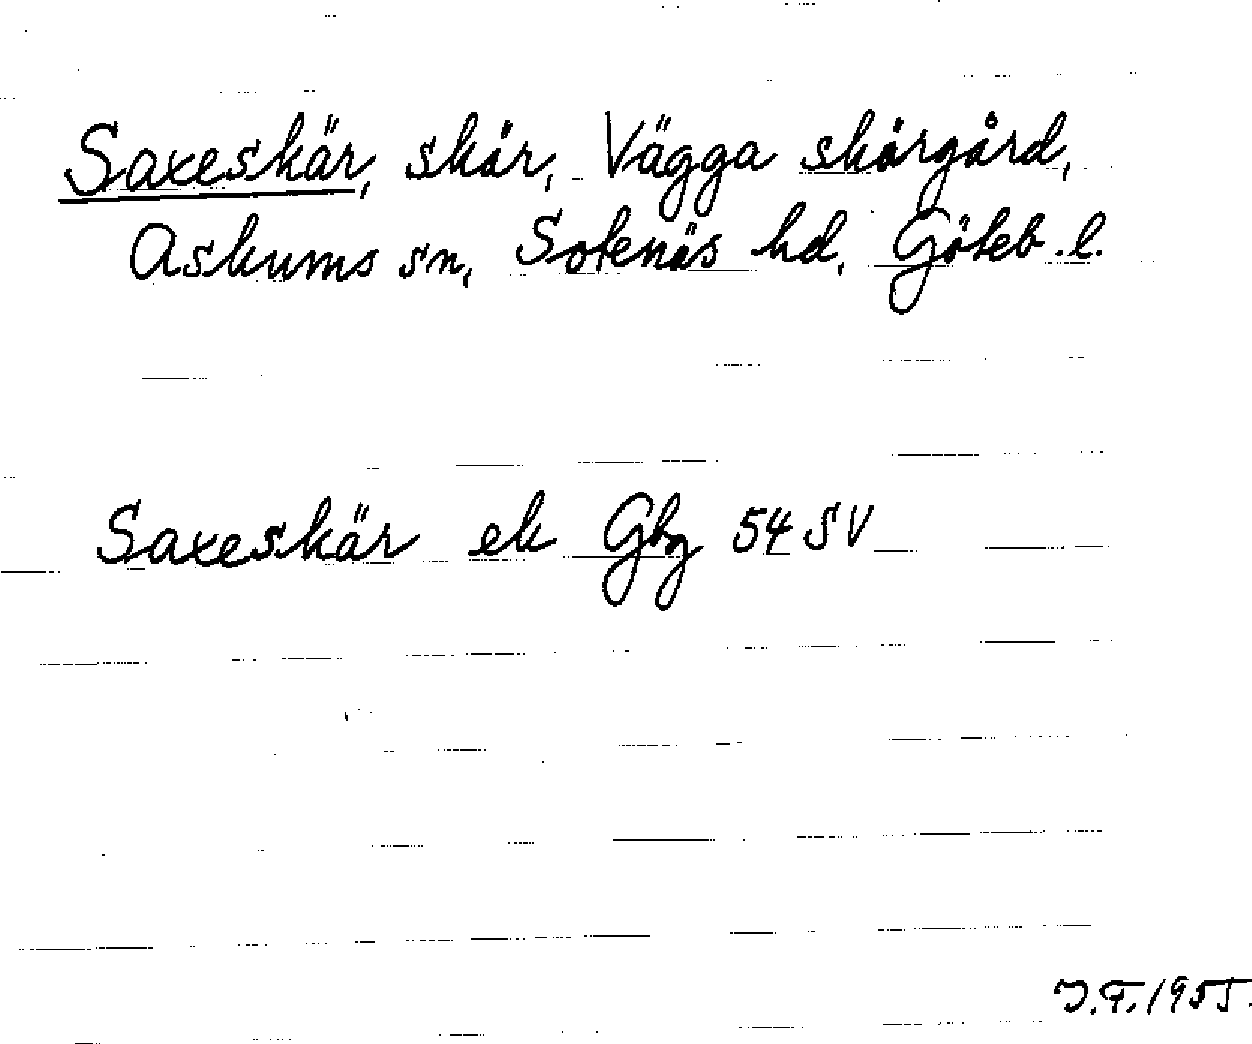 Saxeskär, skär, Vägga skärgård,
Askums sn, Sotenäs hd, Göteb. l.
Saxeskär ek Gbg 54 SV
J.F. 1955.